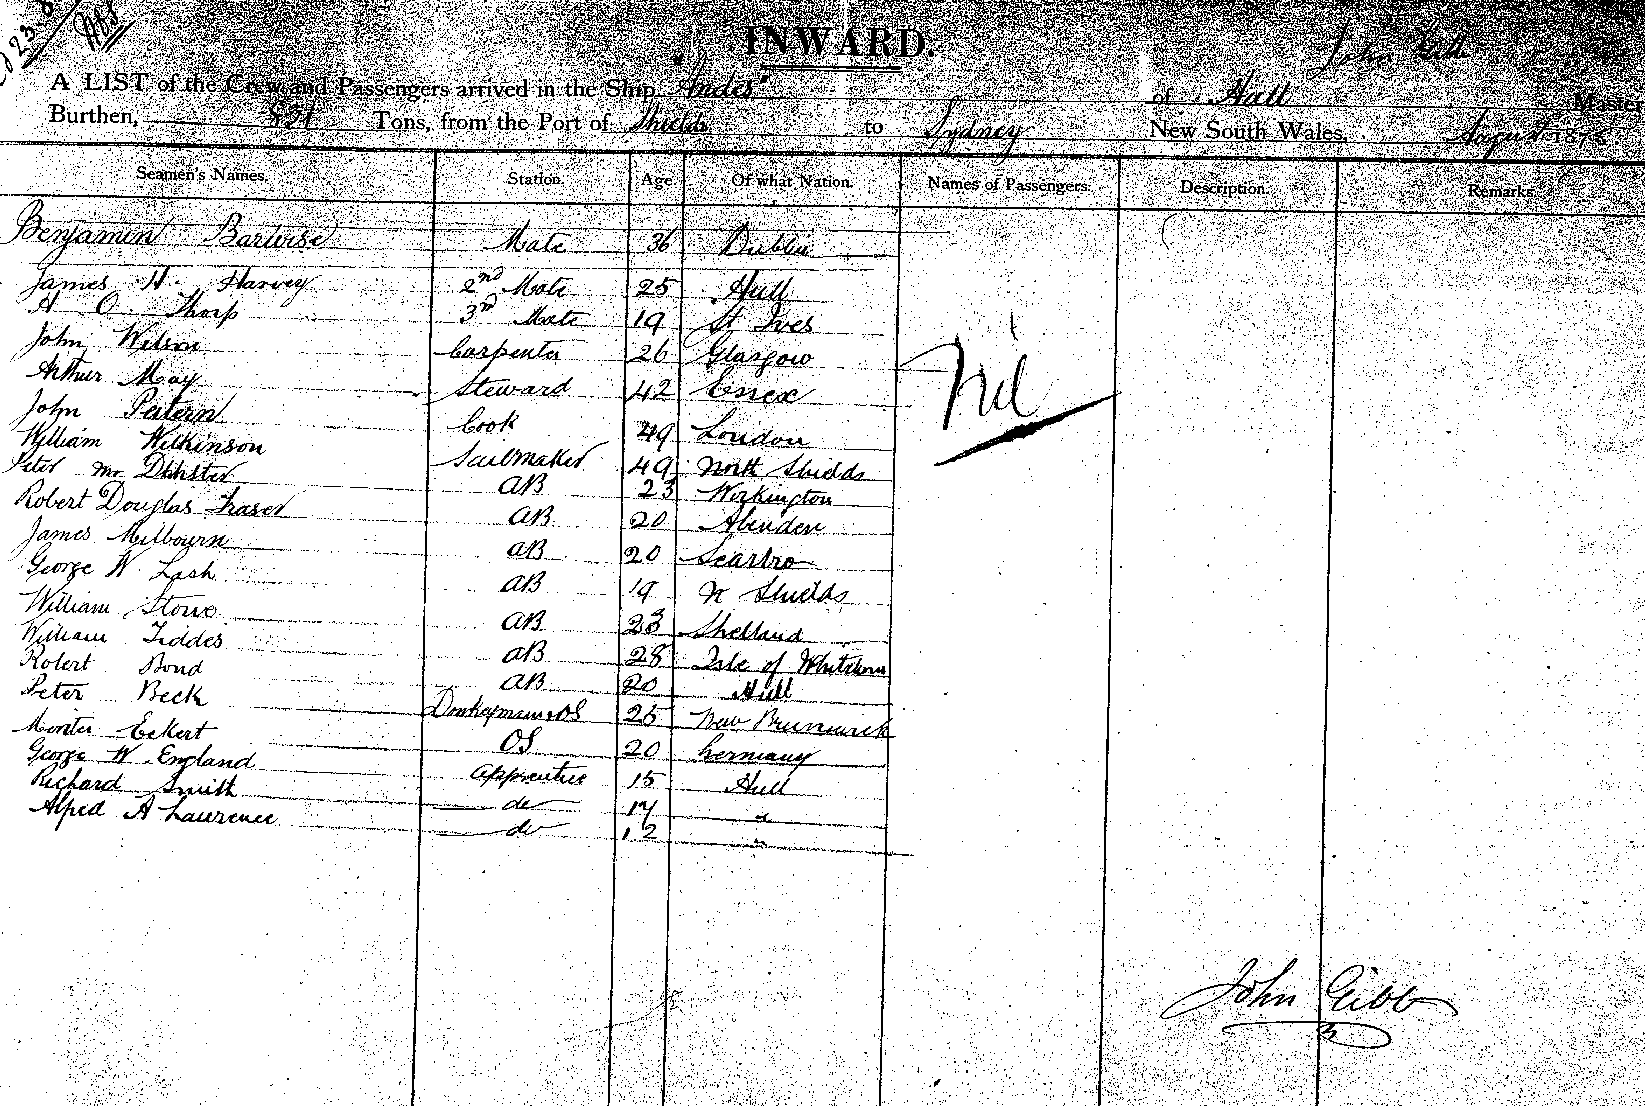 INWARD.
A LIST of the Crew and Passengers arrived in the Ship "Andes" of Hull John Gibb Master
Burthen, 831 Tons, from the Port of Shields to Sydney New South Wales, August 187
Seamen's Names. Station. Age Of what Nation. Names of Passengers. Description. Remarks
Benjamin Barwise Mate 36 Dublin
James H. Harvey 2nd Mate 25 Hull
H O Thorp 3rd Mate 19 St Ives
John Wilson Carpenter 26 Glasgow
Arthur May Steward 42 Essex
Nil
John Cook 49 London
William Wilkinson Sailmaker 49 North Shields
Peter AB 23 Workington
Robert Douglas Fraser AB 20 Aberdeen
James Milbourn AB 20 Scarbro
George W Lash AB 19 N Shields
William Stove AB 23 Shetland
William Fiddes AB 28 Isle of Whithorn
Robert Bond AB 20 Hull
Peter Beck Donkeyman & OS 25 New Brunswick
Eckert OS 20 Germany
George W. England Apprentice 15 Hull
Richard Smith do 17 "
Alfred A Laurence do 12 "
John Gibb